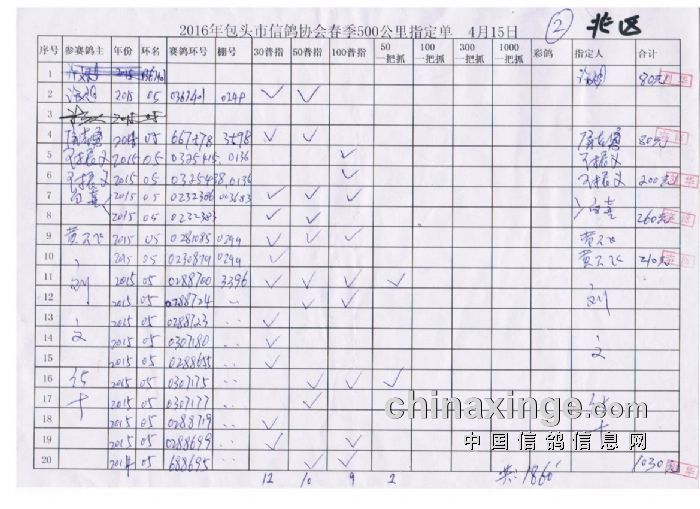 ② 北区
2016年包头市信鸽协会春季500公里指定单 4月15日
序号 参赛鸽主 年份 环名 赛鸽环号 棚号 30普指 50普指 100普指 50一把抓 100一把抓 300一把抓 1000一把抓 彩鸽 指定人 合计
1 2015 80元
2 2015 05 0367401 0248 ✓ ✓
3 2015 05
4 05 667478 3598 ✓ ✓ 80元
5 2015 05 0325415 0136 ✓
6 2015 05 0325438 0136 ✓ 200元
7 2015 05 0232306 003683 ✓ ✓ ✓
8 2015 05 0222383 ✓ ✓ 260元
9 2015 05 0281085 0299 ✓ ✓ ✓
10 2015 05 0230819 0299 ✓ 210元
11 刘 2015 05 0288700 3396 ✓ ✓ ✓ ✓
12 2015 05 0288724 ✓ ✓ 刘
13 2015 05 0288723 ✓
14 文 2015 05 0307180 ✓
15 2015 05 0288655 ✓ 文
16 2015 05 0307175 ✓ ✓ ✓
17 2015 05 0307177 ✓
18 2015 05 0288719 ✓
19 2015 05 0288699 ✓ ✓
20 2014 05 688695 ✓ ✓ 1030元
12 10 9 2 共:1860
chinaxinge.com
中国信鸽信息网